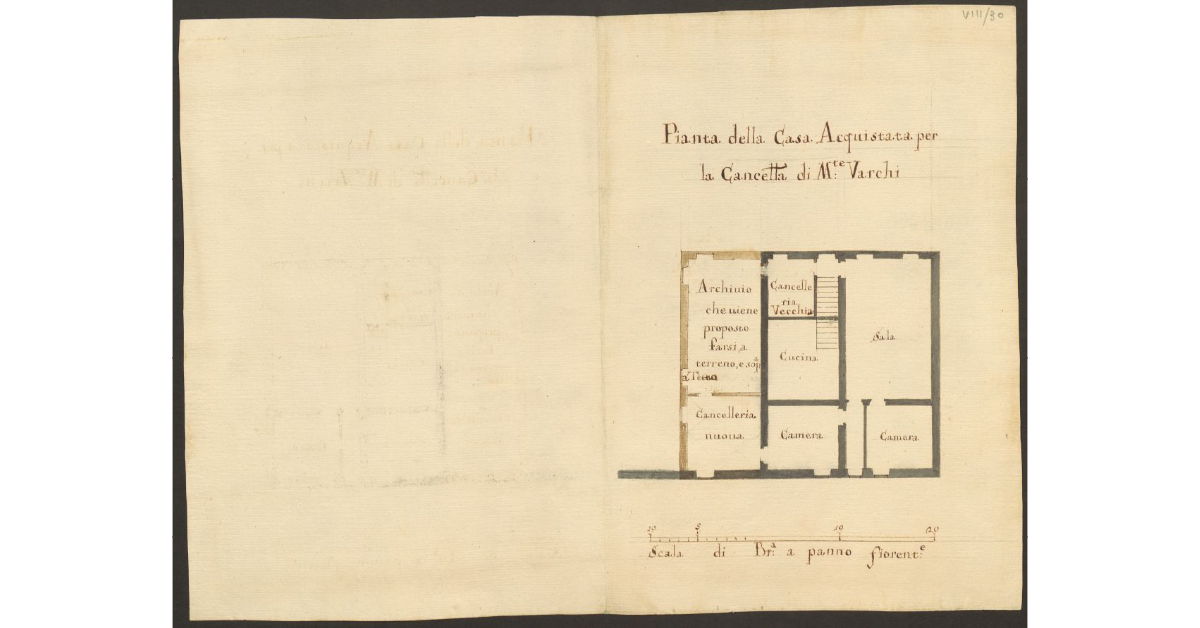 VIII/30
Pianta della Casa Acquistata per
la Cancell͞a di M.te Varchi
Archivio
che uiene
proposto
farsi a
terreno, e sop.a
Cancelleria
nuoua
Cancelle
ria
Vecchia
Cucina
Sala
Camera
Camera
10 5 10 20
Scala di Br.a a panno fiorent.e